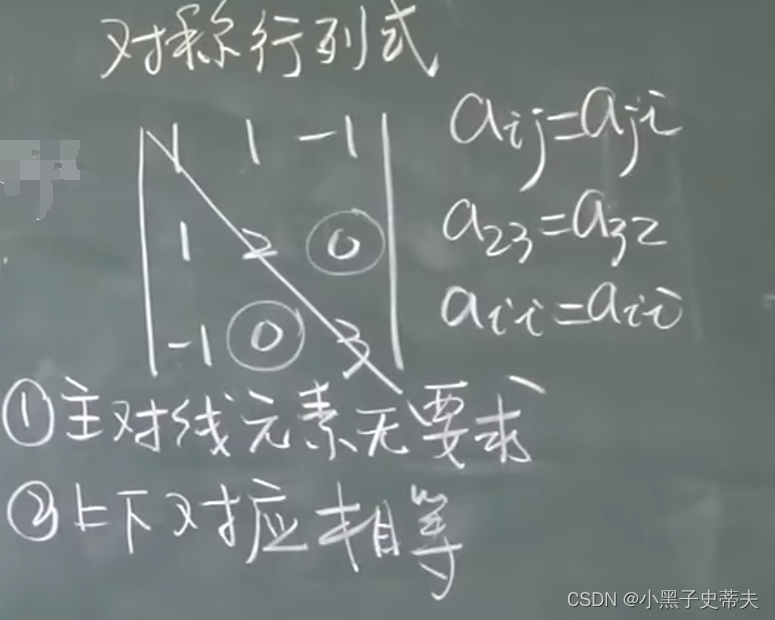 对称行列式
1 1 -1
1 2 0
-1 0 3
aij=aji
a23=a32
aii=aii
①主对线元素无要求
②上下对应相等
CSDN @小黑子史蒂夫